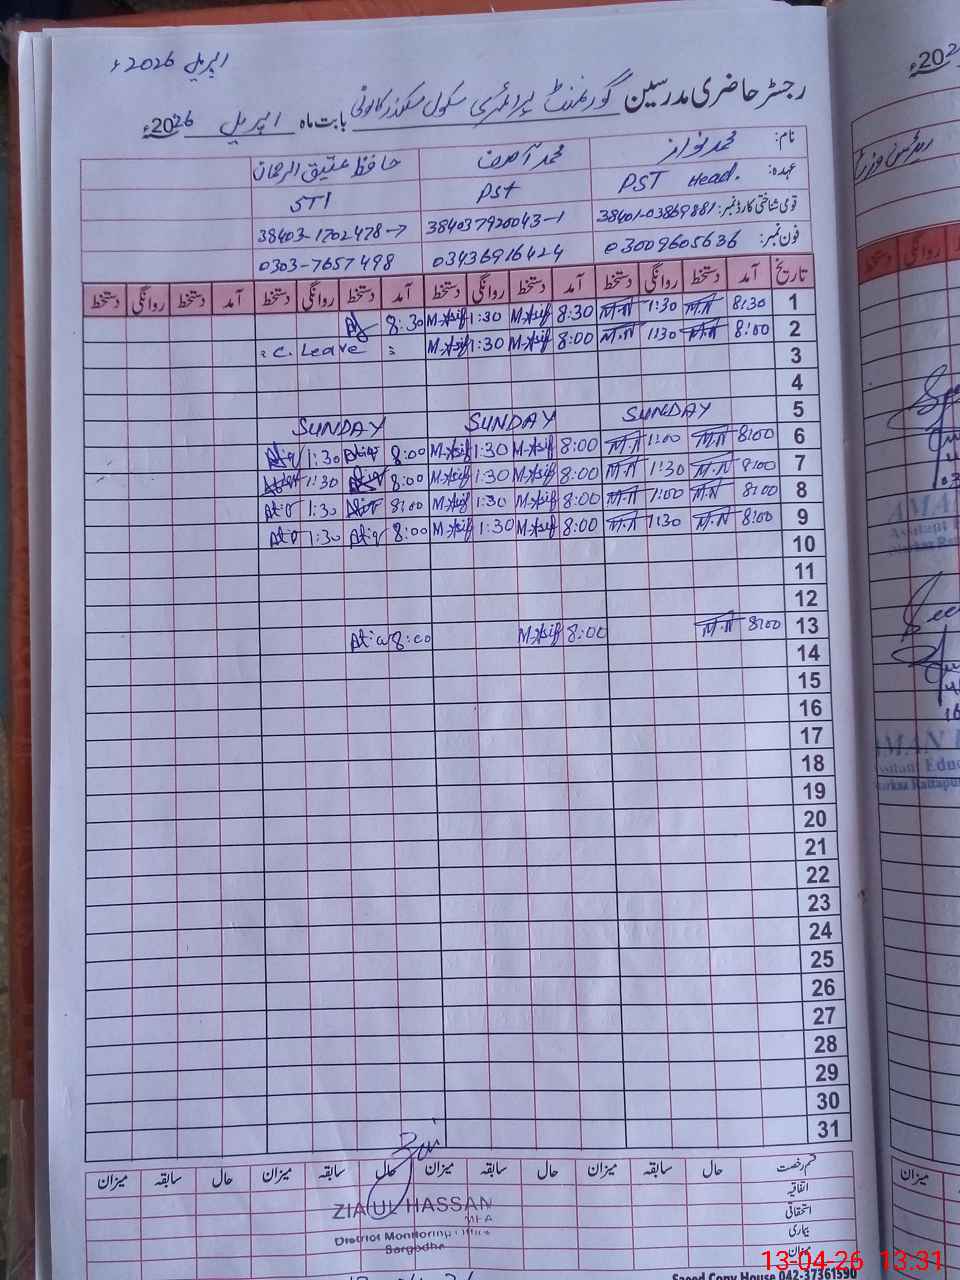 اپریل 2026ء
رجسٹر حاضری مدرسین گورنمنٹ پرائمری سکول سکندر کالونی بابت ماہ اپریل 2026ء
نام: محمد نواز محمد آصف حافظ عتیق الرحمان
عہدہ: PST Head. PST STI
قومی شناختی کارڈ نمبر: 38401-03869881 384037920043-1 38403-1702478-7
فون نمبر: 03009605636 03436916424 0303-7657498
تاریخ آمد دستخط روانگی دستخط آمد دستخط روانگی دستخط آمد دستخط روانگی دستخط آمد دستخط روانگی دستخط
1 8:30 M.N 1:30 M.N 8:30 M.Asif 1:30 M.Asif 8:30
2 8:00 M.N 1:30 M.N 8:00 M.Asif 1:30 M.Asif : C. Leave :
3
4
5 SUNDAY SUNDAY SUNDAY
6 8:00 M.N 1:00 M.N 8:00 M.Asif 1:30 M.Asif 8:00 Atiq 1:30 Atiq
7 8:00 M.N 1:30 M.N 8:00 M.Asif 1:30 M.Asif 8:00 Atiq 1:30 Atiq
8 8:00 M.N 1:00 M.N 8:00 M.Asif 1:30 M.Asif 8:00 Atiq 1:30 Atiq
9 8:00 M.N 1:30 M.N 8:00 M.Asif 1:30 M.Asif 8:00 Atiq 1:30 Atiq
10
11
12
13 8:00 M.N 8:00 M.Asif 8:00 Atiq
14
15
16
17
18
19
20
21
22
23
24
25
26
27
28
29
30
31
قسم رخصت حال سابقہ میزان حال سابقہ میزان حال سابقہ میزان حال سابقہ میزان
اتفاقیہ
استحقاقی
بیماری
میزان
ZIA UL HASSAN
MEA
District Monitoring Office
Sargodha
Saeed Copy House 042-37361590
13-04-26 13:31
2026ء
AMAN
Assistant E
AMAN
Assistant Educ
Markaz Rattapur
میزان